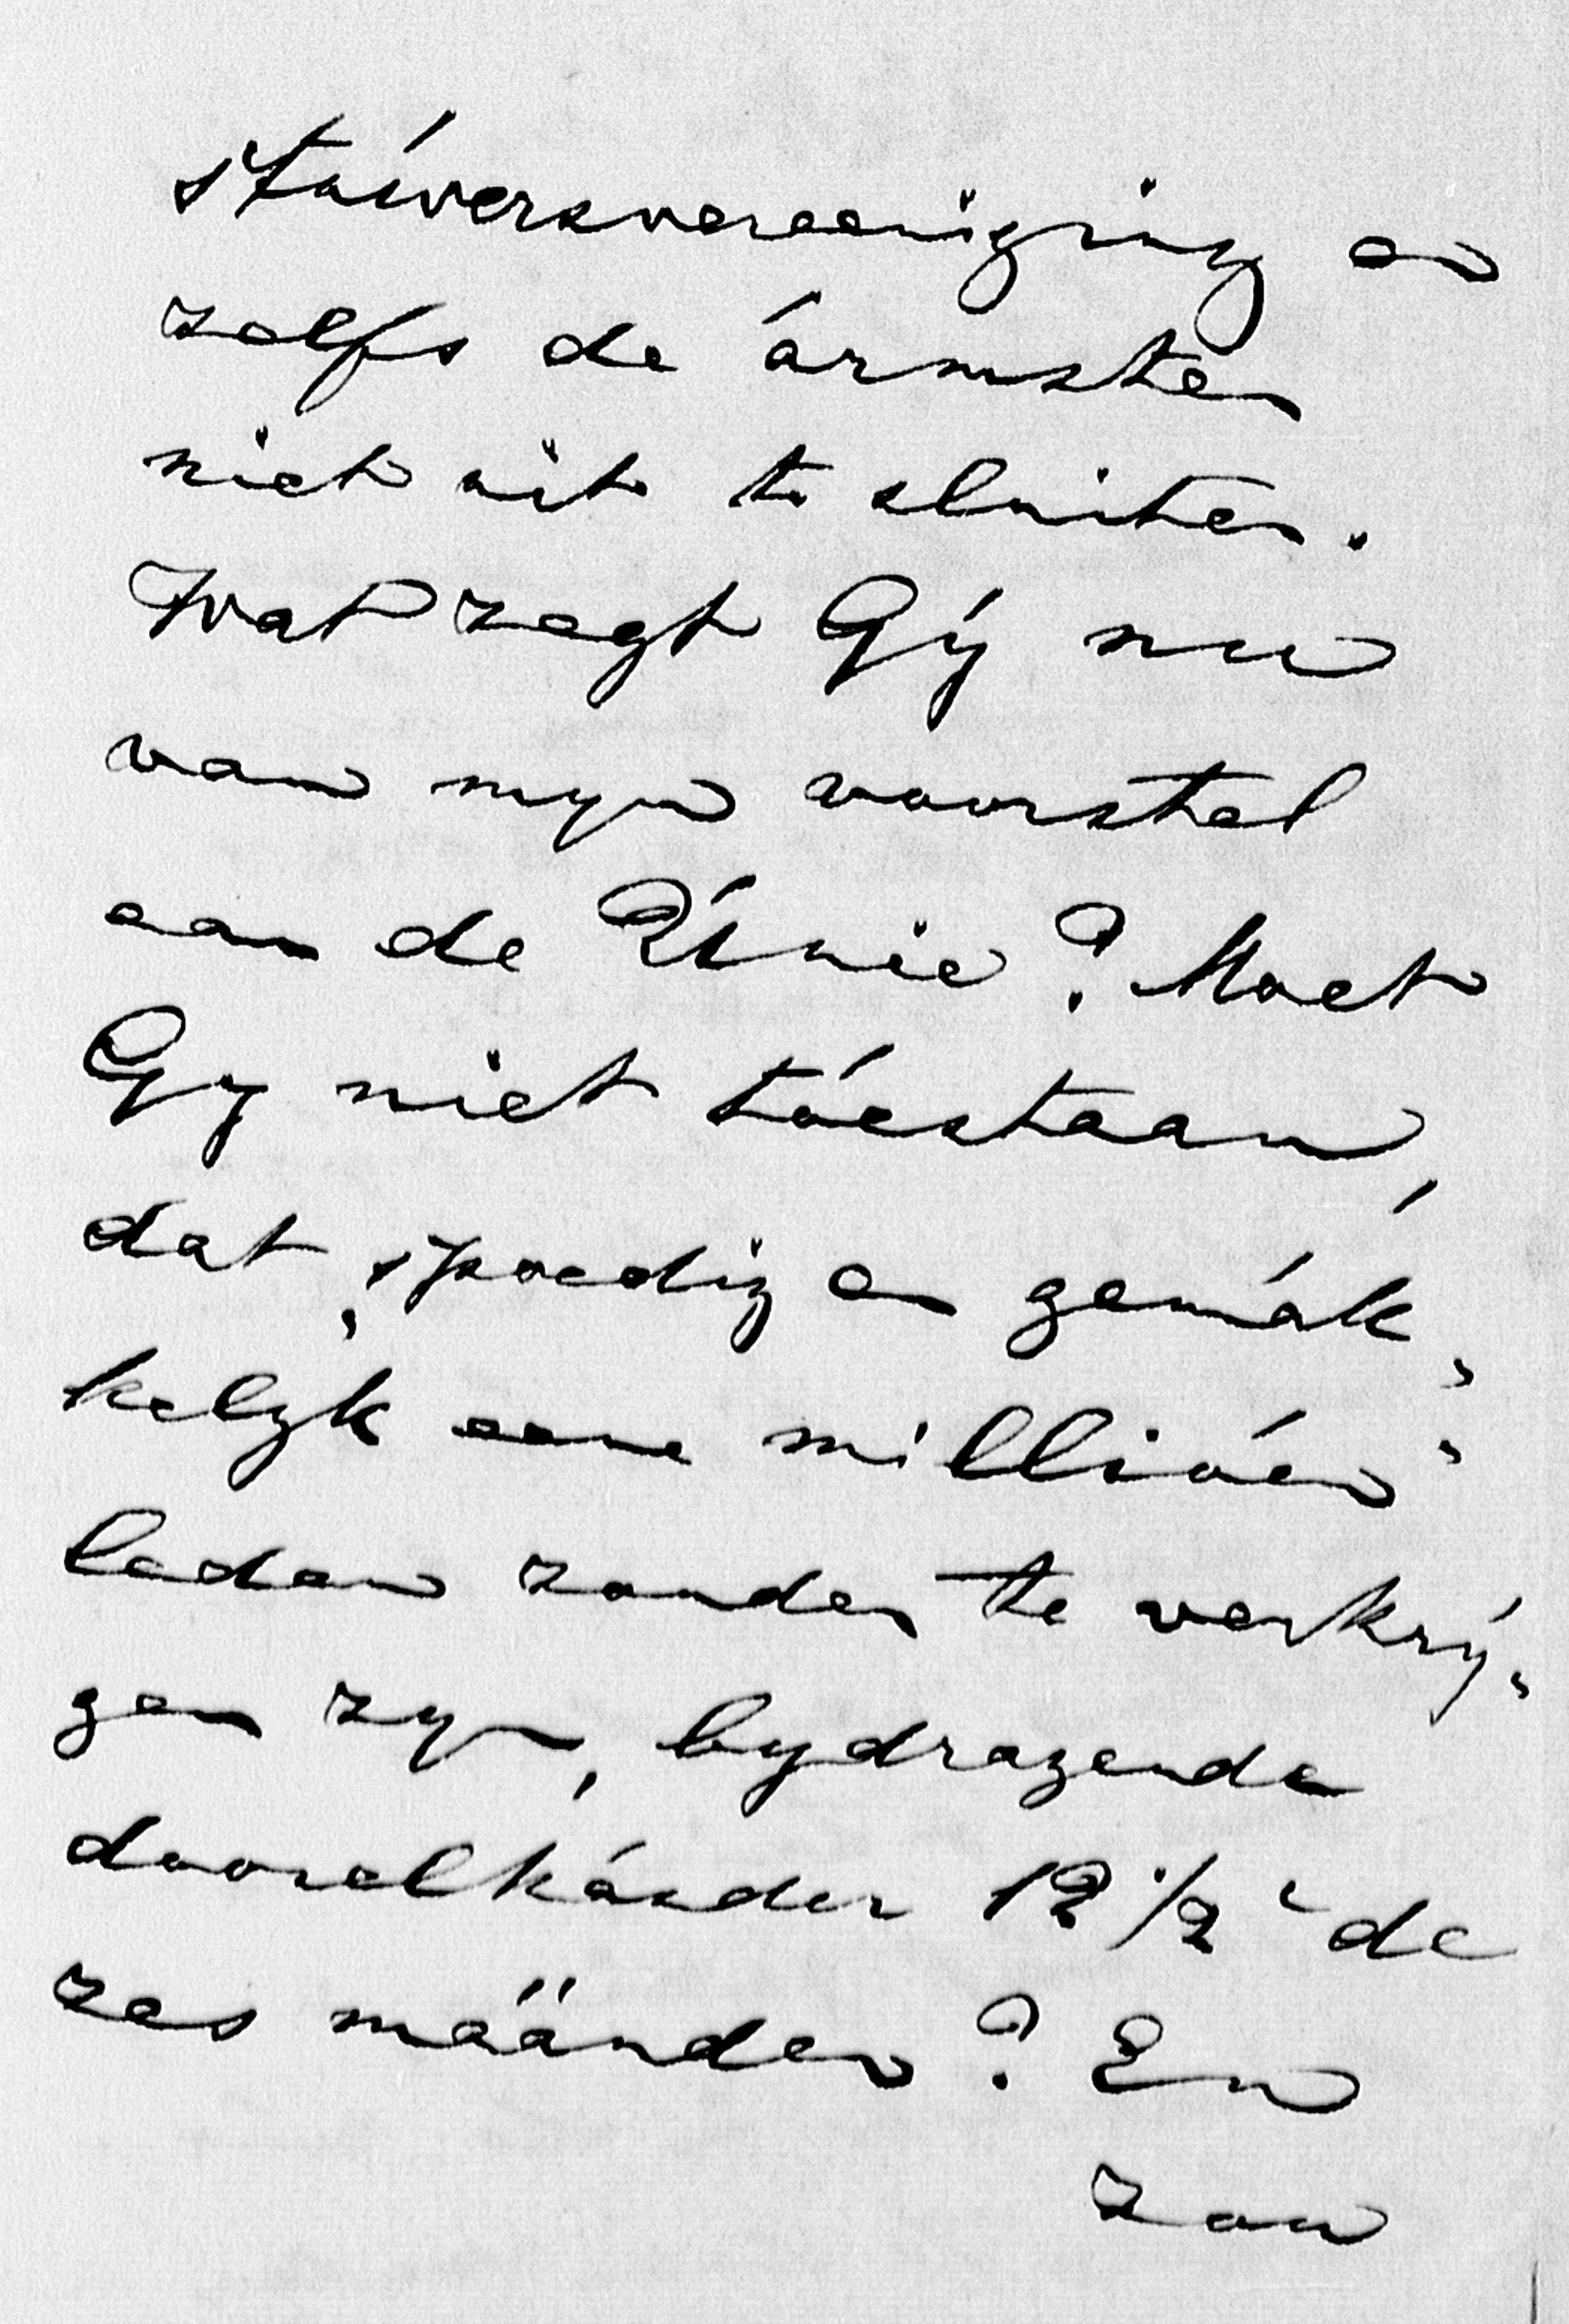 stúiversvereeniging en
zelfs de ármsten
niet uit te sluiten.
Wat zegt Gý nu
van myn voorstel
aan de Únie? Moet
Gy niet tóestaan,
dat spoedig en gemák„
kelyk eene millióen
leden zouden te verkrý„
gen zyn, bydragende
doorelkánder 12 1/2 c de
zes máánden? En
zou